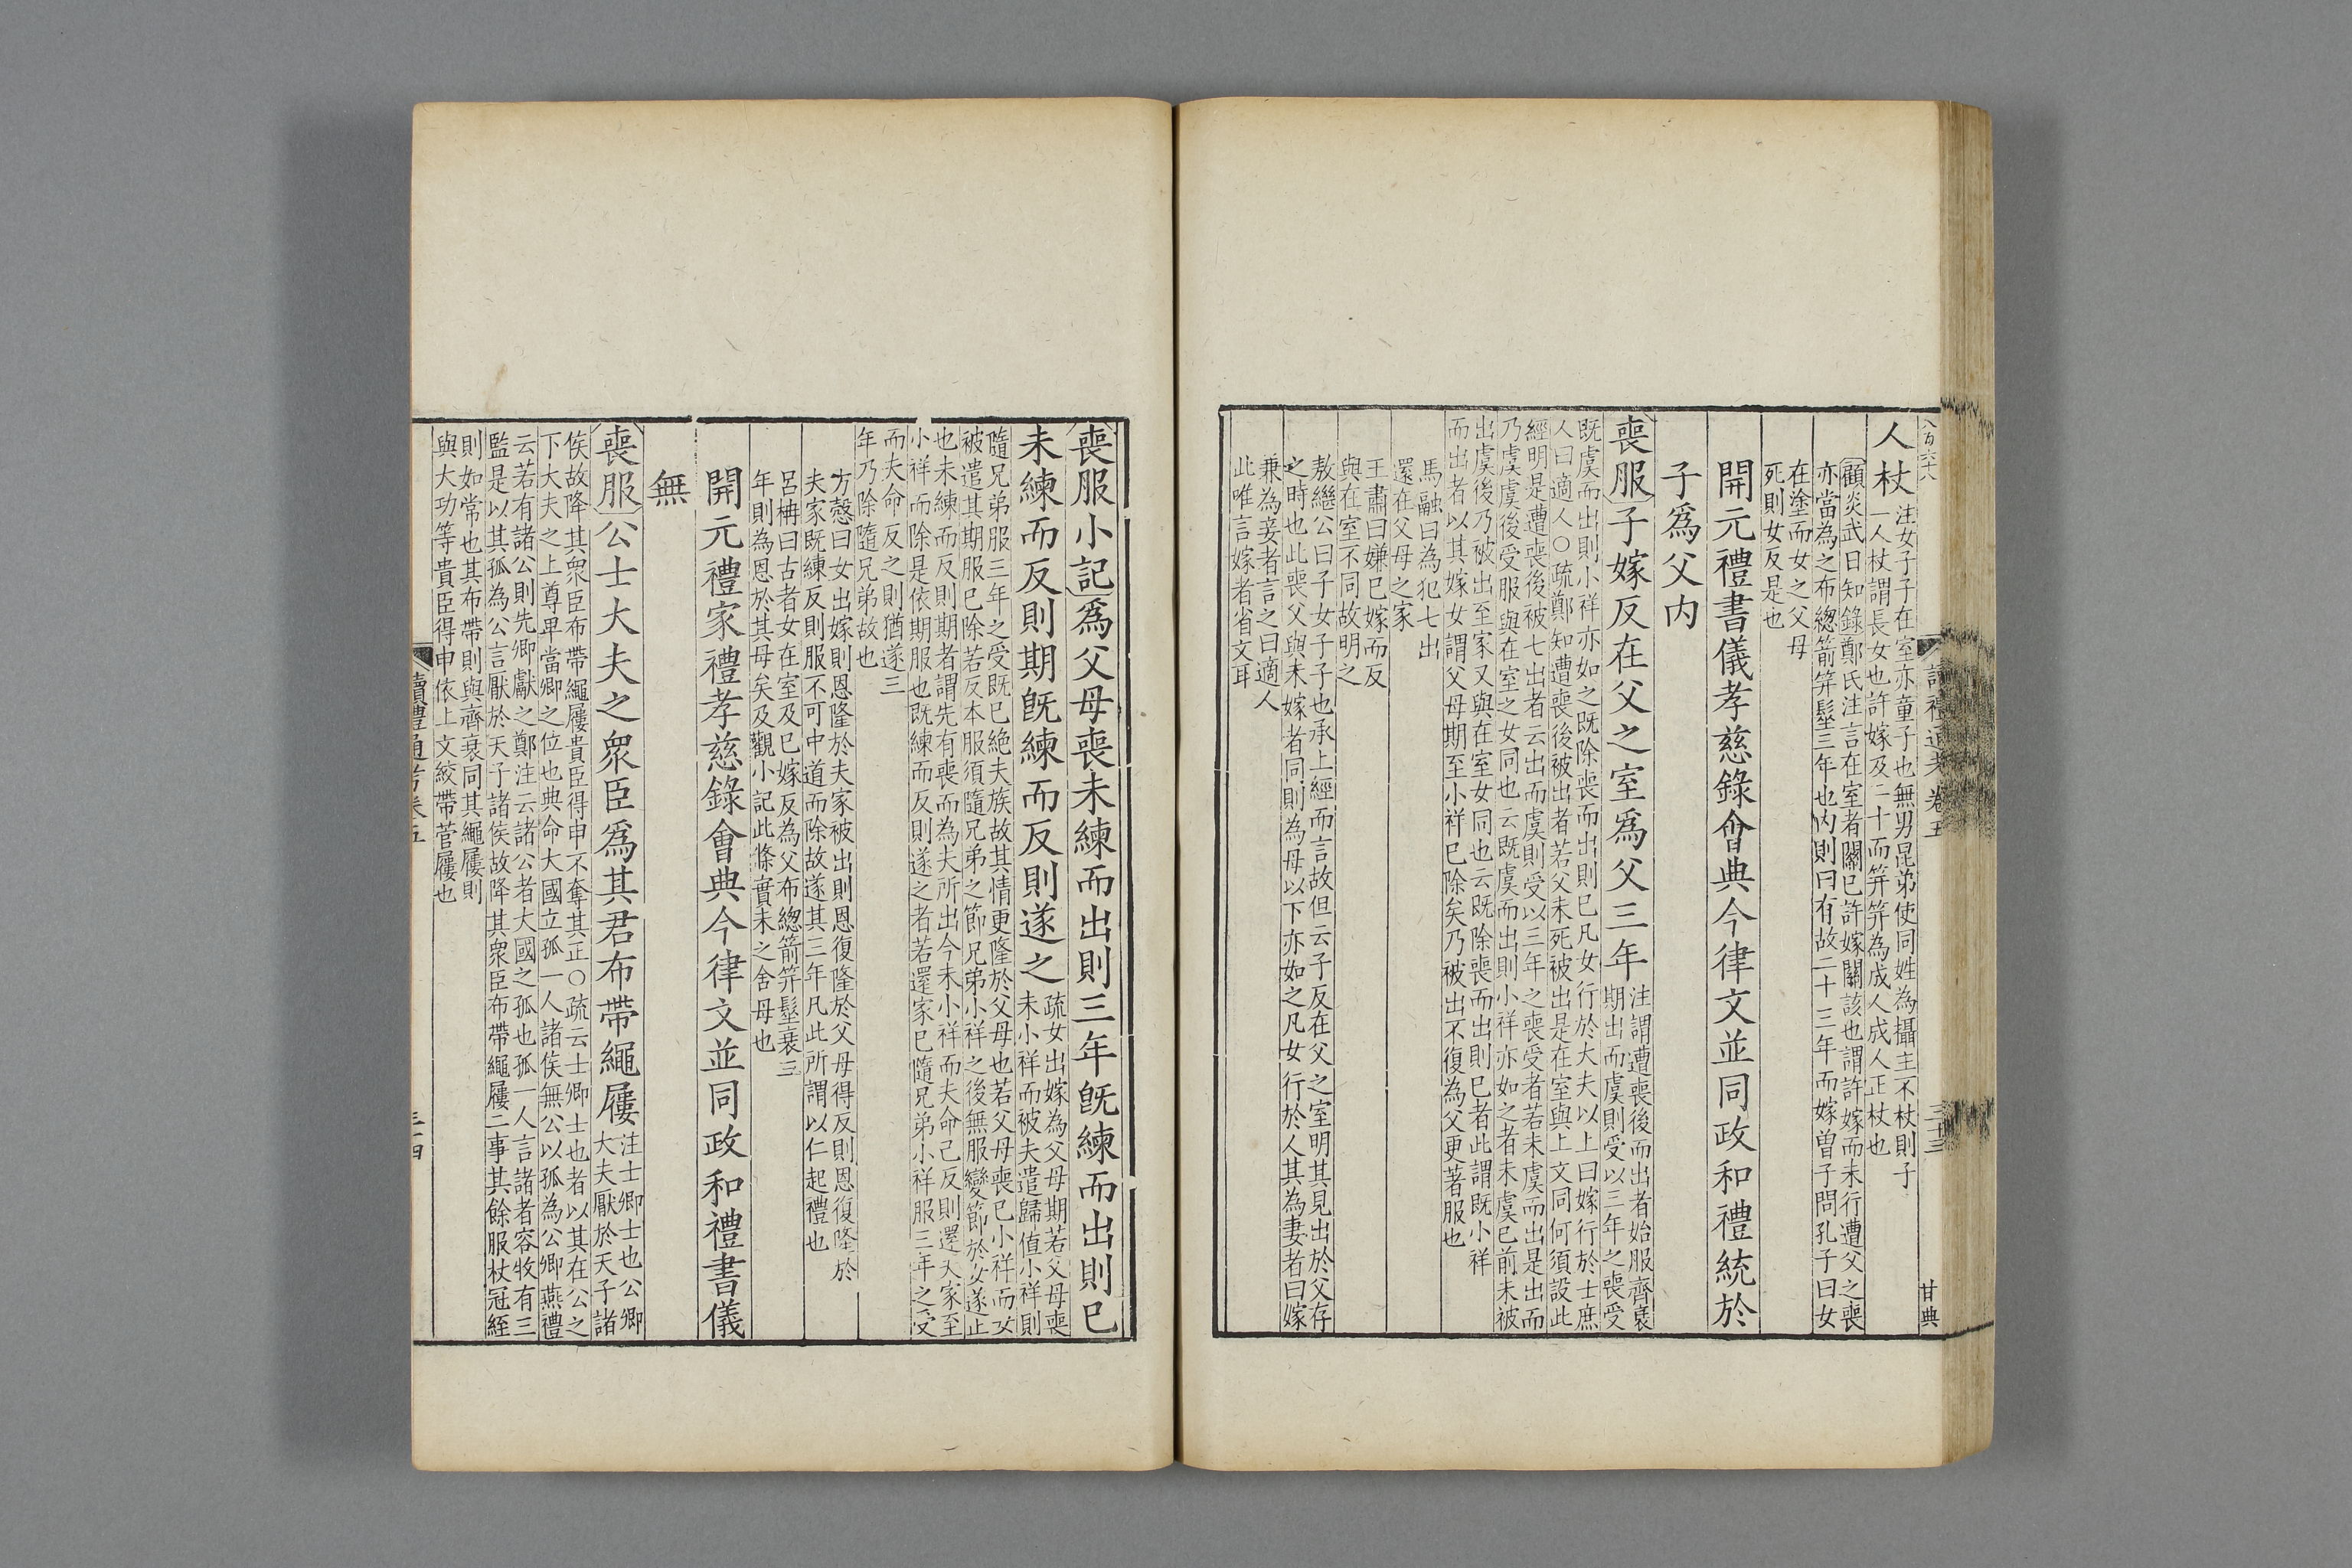 八百六十八
讀禮通考卷五
三十三
甘典
人杖注女子子在室亦童子也無男昆弟使同姓為攝主不杖則子
一人杖謂長女也許嫁及二十而笄笄為成人成人正杖也
顧炎武日知錄鄭氏注言在室者關已許嫁關該也謂許嫁而未行遭父之喪
亦當為之布總箭笄髽三年也內則曰有故二十三年而嫁曾子問孔子曰女
在塗而女之父母
死則女反是也
開元禮書儀孝慈錄會典今律文並同政和禮統於
子爲父內
喪服子嫁反在父之室爲父三年注謂遭喪後而出者始服齊衰
期出而虞則受以三年之喪受
既虞而出則小祥亦如之既除喪而出則已凡女行於大夫以上曰嫁行於士庶
人曰適人○疏鄭知遭喪後被出者若父未死被出是在室與上文同何須設此
經明是遭喪後被七出者云出而虞則受以三年之喪受者若未虞而出是出而
乃虞虞後受服與在室之女同也云既虞而出則小祥亦如之者未虞已前未被
出虞後乃被出至家又與在室女同也云既除喪而出則已者此謂既小祥
而出者以其嫁女謂父母期至小祥已除矣乃被出不復為父更著服也
馬融曰為犯七出
還在父母之家
王肅曰嫌已嫁而反
與在室不同故明之
敖繼公曰子女子子也承上經而言故但云子反在父之室明其見出於父存
之時也此喪父與未嫁者同則為母以下亦如之凡女行於人其為妻者曰嫁
兼為妾者言之曰適人
此唯言嫁者省文耳
喪服小記爲父母喪未練而出則三年旣練而出則已
未練而反則期旣練而反則遂之疏女出嫁為父母期若父母喪
未小祥而被夫遣歸值小祥則
隨兄弟服三年之受既已絶夫族故其情更隆於父母也若父母喪已小祥而女
被遣其期服已除若反本服須隨兄弟之節兄弟小祥之後無服變節於女遂止
也未練而反則期者謂先有喪而為夫所出今未小祥而夫命己反則還夫家至
小祥而除是依期服也既練而反則遂之者若還家已隨兄弟小祥服三年之受
而夫命反之則猶遂三
年乃除隨兄弟故也
方慤曰女出嫁則恩隆於夫家被出則恩復隆於父母得反則恩復隆於
夫家既練反則服不可中道而除故遂其三年凡此所謂以仁起禮也
呂柟曰古者女在室及已嫁反為父布總箭笄髽衰三
年則為恩於其母矣及觀小記此條實未之舍母也
開元禮家禮孝慈錄會典今律文並同政和禮書儀
無
喪服公士大夫之衆臣爲其君布帶繩屨注士卿士也公卿
大夫厭於天子諸
侯故降其衆臣布帶繩屨貴臣得申不奪其正○疏云士卿士也者以其在公之
下大夫之上尊卑當卿之位也典命大國立孤一人諸侯無公以孤為公卿燕禮
云若有諸公則先卿獻之鄭注云諸公者大國之孤也孤一人言諸者容牧有三
監是以其孤為公言厭於天子諸侯故降其衆臣布帶繩屨二事其餘服杖冠絰
則如常也其布帶則與齊衰同其繩屨則
與大功等貴臣得申依上文絞帶菅屨也
讀禮通考卷五
三十四